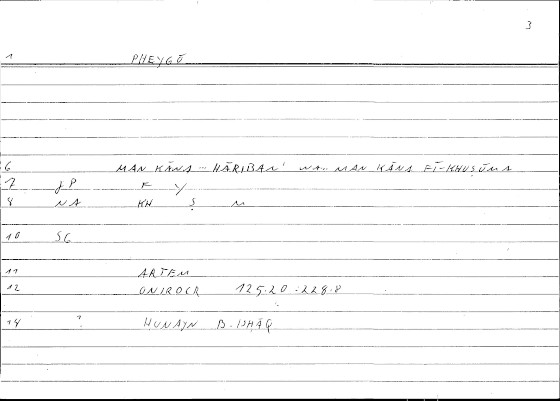 3
1 PHEYGŌ
6 MAN KĀNA - HĀRIBAN' WA- MAN KĀNA FĪ-KHUṢŪMA
7 gP F Y
8 NA KH Ṣ M
10 SG
11 ARTEM
12 ONIROCR 125.20 :228.8
14 ? HUNAYN B. ISHĀQ